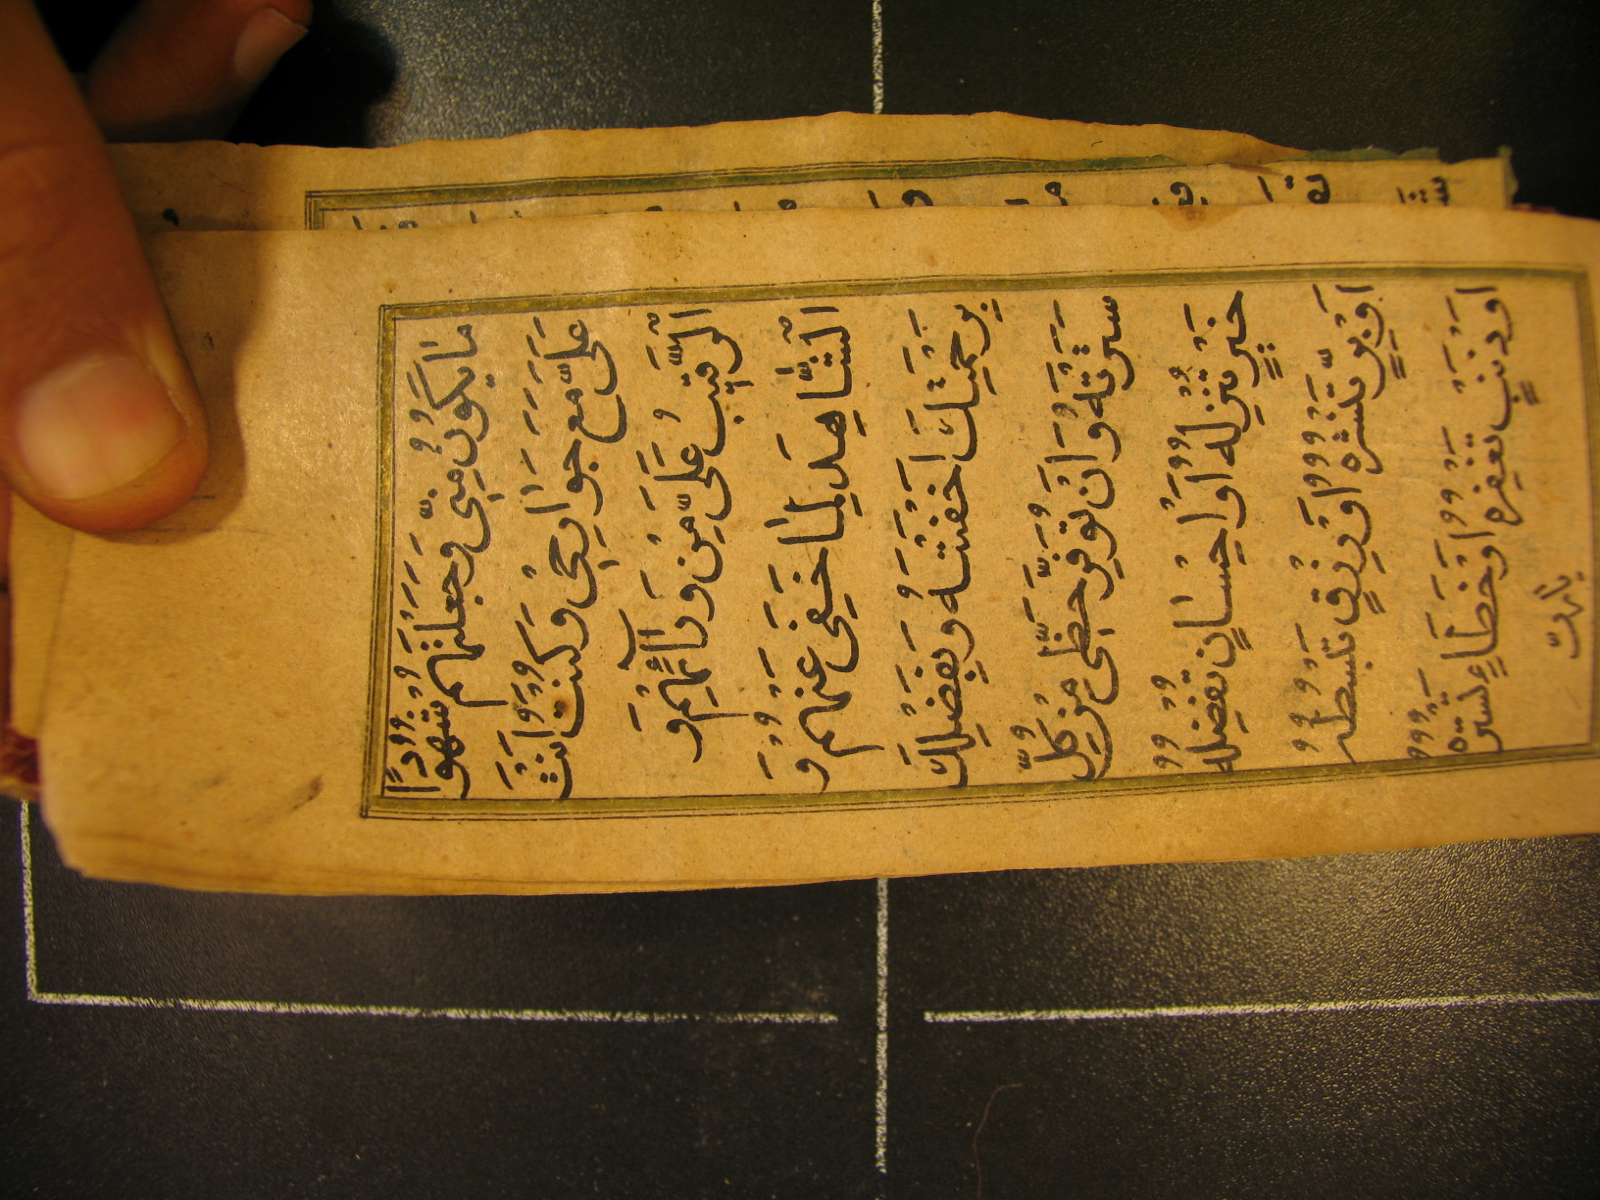 مَا يَكُونُ مِنِّى وَجَعَلْتَهُمْ شُهُودًا
عَلَىَّ مَعَ جَوَارِحِى وَكُنْتَ اَنْتَ
الرَّقِيبَ عَلَىَّ مِنْ وَرَآئِهِمْ وَ
الشَّاهِدَ لِمَا خَفِىَ عَنْهُمْ وَ
بِرَحْمَتِكَ اَخْفَيْتَهُ وَبِفَضْلِكَ
سَتَرْتَهُ وَاَنْ تُوَفِّرَ حَظِّى مِنْ كُلِّ
خَيْرٍ تُنْزِلُهُ اَوْ اِحْسَانٍ تُفْضِلُهُ
اَوْ بِرٍّ تَنْشُرُهُ اَوْ رِزْقٍ تَبْسُطُهُ
اَوْ ذَنْبٍ تَغْفِرُهُ اَوْ خَطَاءٍ تَسْتُرُهُ
يَا رَبِّ